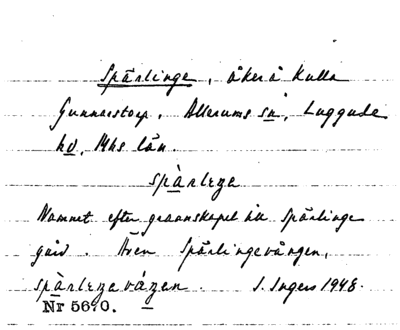 Spärlinge, åker å Kulla
Gunnarstorp. Allerums sn, Luggude
hd, Mhs län.
spàrleŋe
Namnet efter grannskapet till Spärlinge
gård. Även Spärlingevången,
spàrleŋevåŋen. S. Ingers 1948.
Nr 5670.